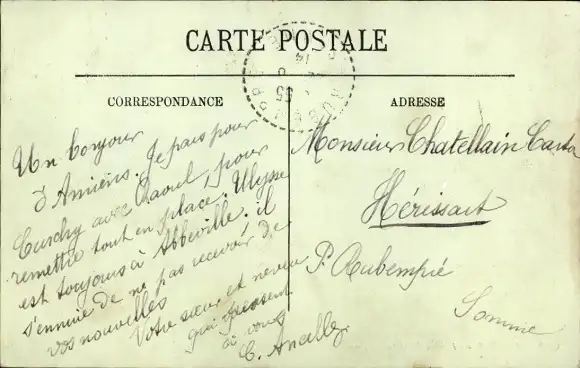 CARTE POSTALE
CORRESPONDANCE
ADRESSE
Un bonjour
d'Amiens. Je pars pour
Curchy avec Raoul, pour
remettre tout en place. Ulysse
est toujours à Abbeville. il
s'ennuie de ne pas recevoir de
vos nouvelles
Votre sœur et neveu
qui pensent
à vous
Monsieur Chatellain
Hérissart
P. Rubempré
Somme